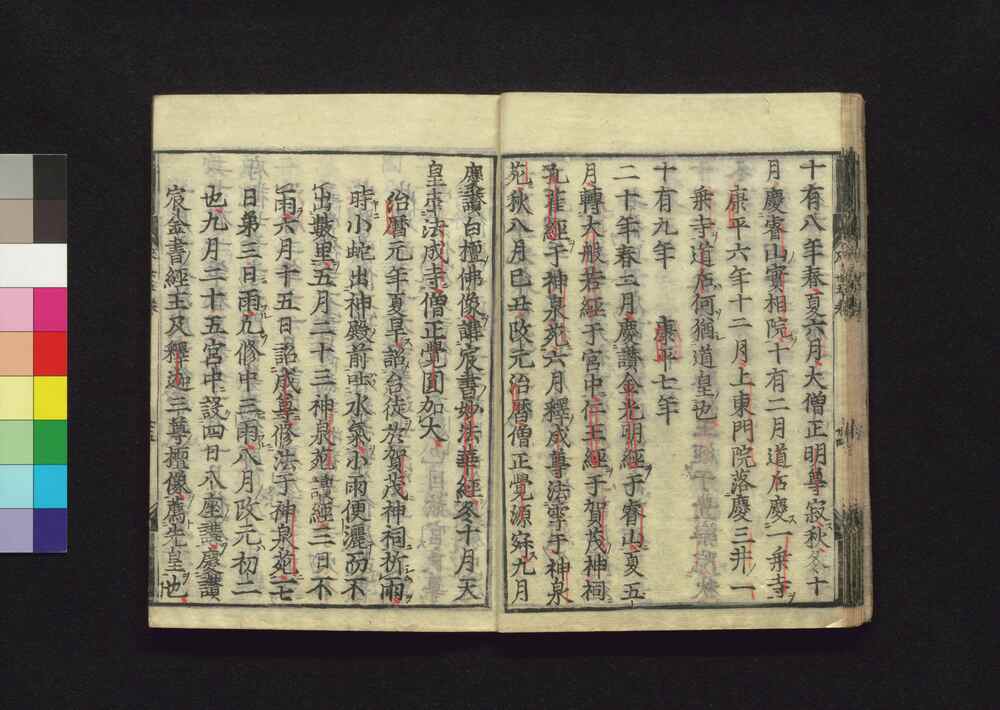 十有八年春夏六月大僧正明尊寂秋冬十
月慶睿山實相院十有二月道后慶一乗寺
康平六年十二月上東門院落慶三井一
乗寺道后何猶道皇也
十有九年 康平七年
二十年春三月慶讃金光明經于睿山夏五
月轉大般若經于宮中仁王經于賀茂神祠
孔雀經于神泉苑六月釋成尊法雩于神泉
苑秋八月巳丑改元治暦僧正覺源寂九月
慶讃白檀佛像講宸書妙法華經冬十月天
皇幸法成寺僧正覺圓加大
治暦元年夏旱詔台徒於賀茂神祠祈雨
時小蛇出神殿前吐水氣小雨便灑而不
出數里五月二十三神泉苑讀經三日不
雨六月十五日詔成尊修法于神泉苑七
日弟三日雨九修中三雨八月改元初二
也九月二十五宮中設四日八座講慶讃
宸金書經王及釋迦三尊檀像薦先皇也